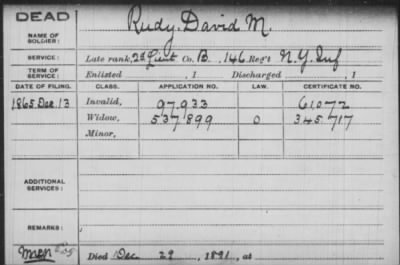 DEAD
Rudy, David M.
NAME OF SOLDIER:
SERVICE: Late rank, 2d Lieut Co. B, 146 Reg't N.Y. Inf
TERM OF SERVICE: Enlisted , 1 Discharged , 1
DATE OF FILING. CLASS. APPLICATION NO. LAW. CERTIFICATE NO.
1865 Dec. 13 Invalid, 97,933 61072
Widow, 537,899 O 345,717
Minor,
ADDITIONAL SERVICES:
REMARKS:
Died Dec 29, 1891, at